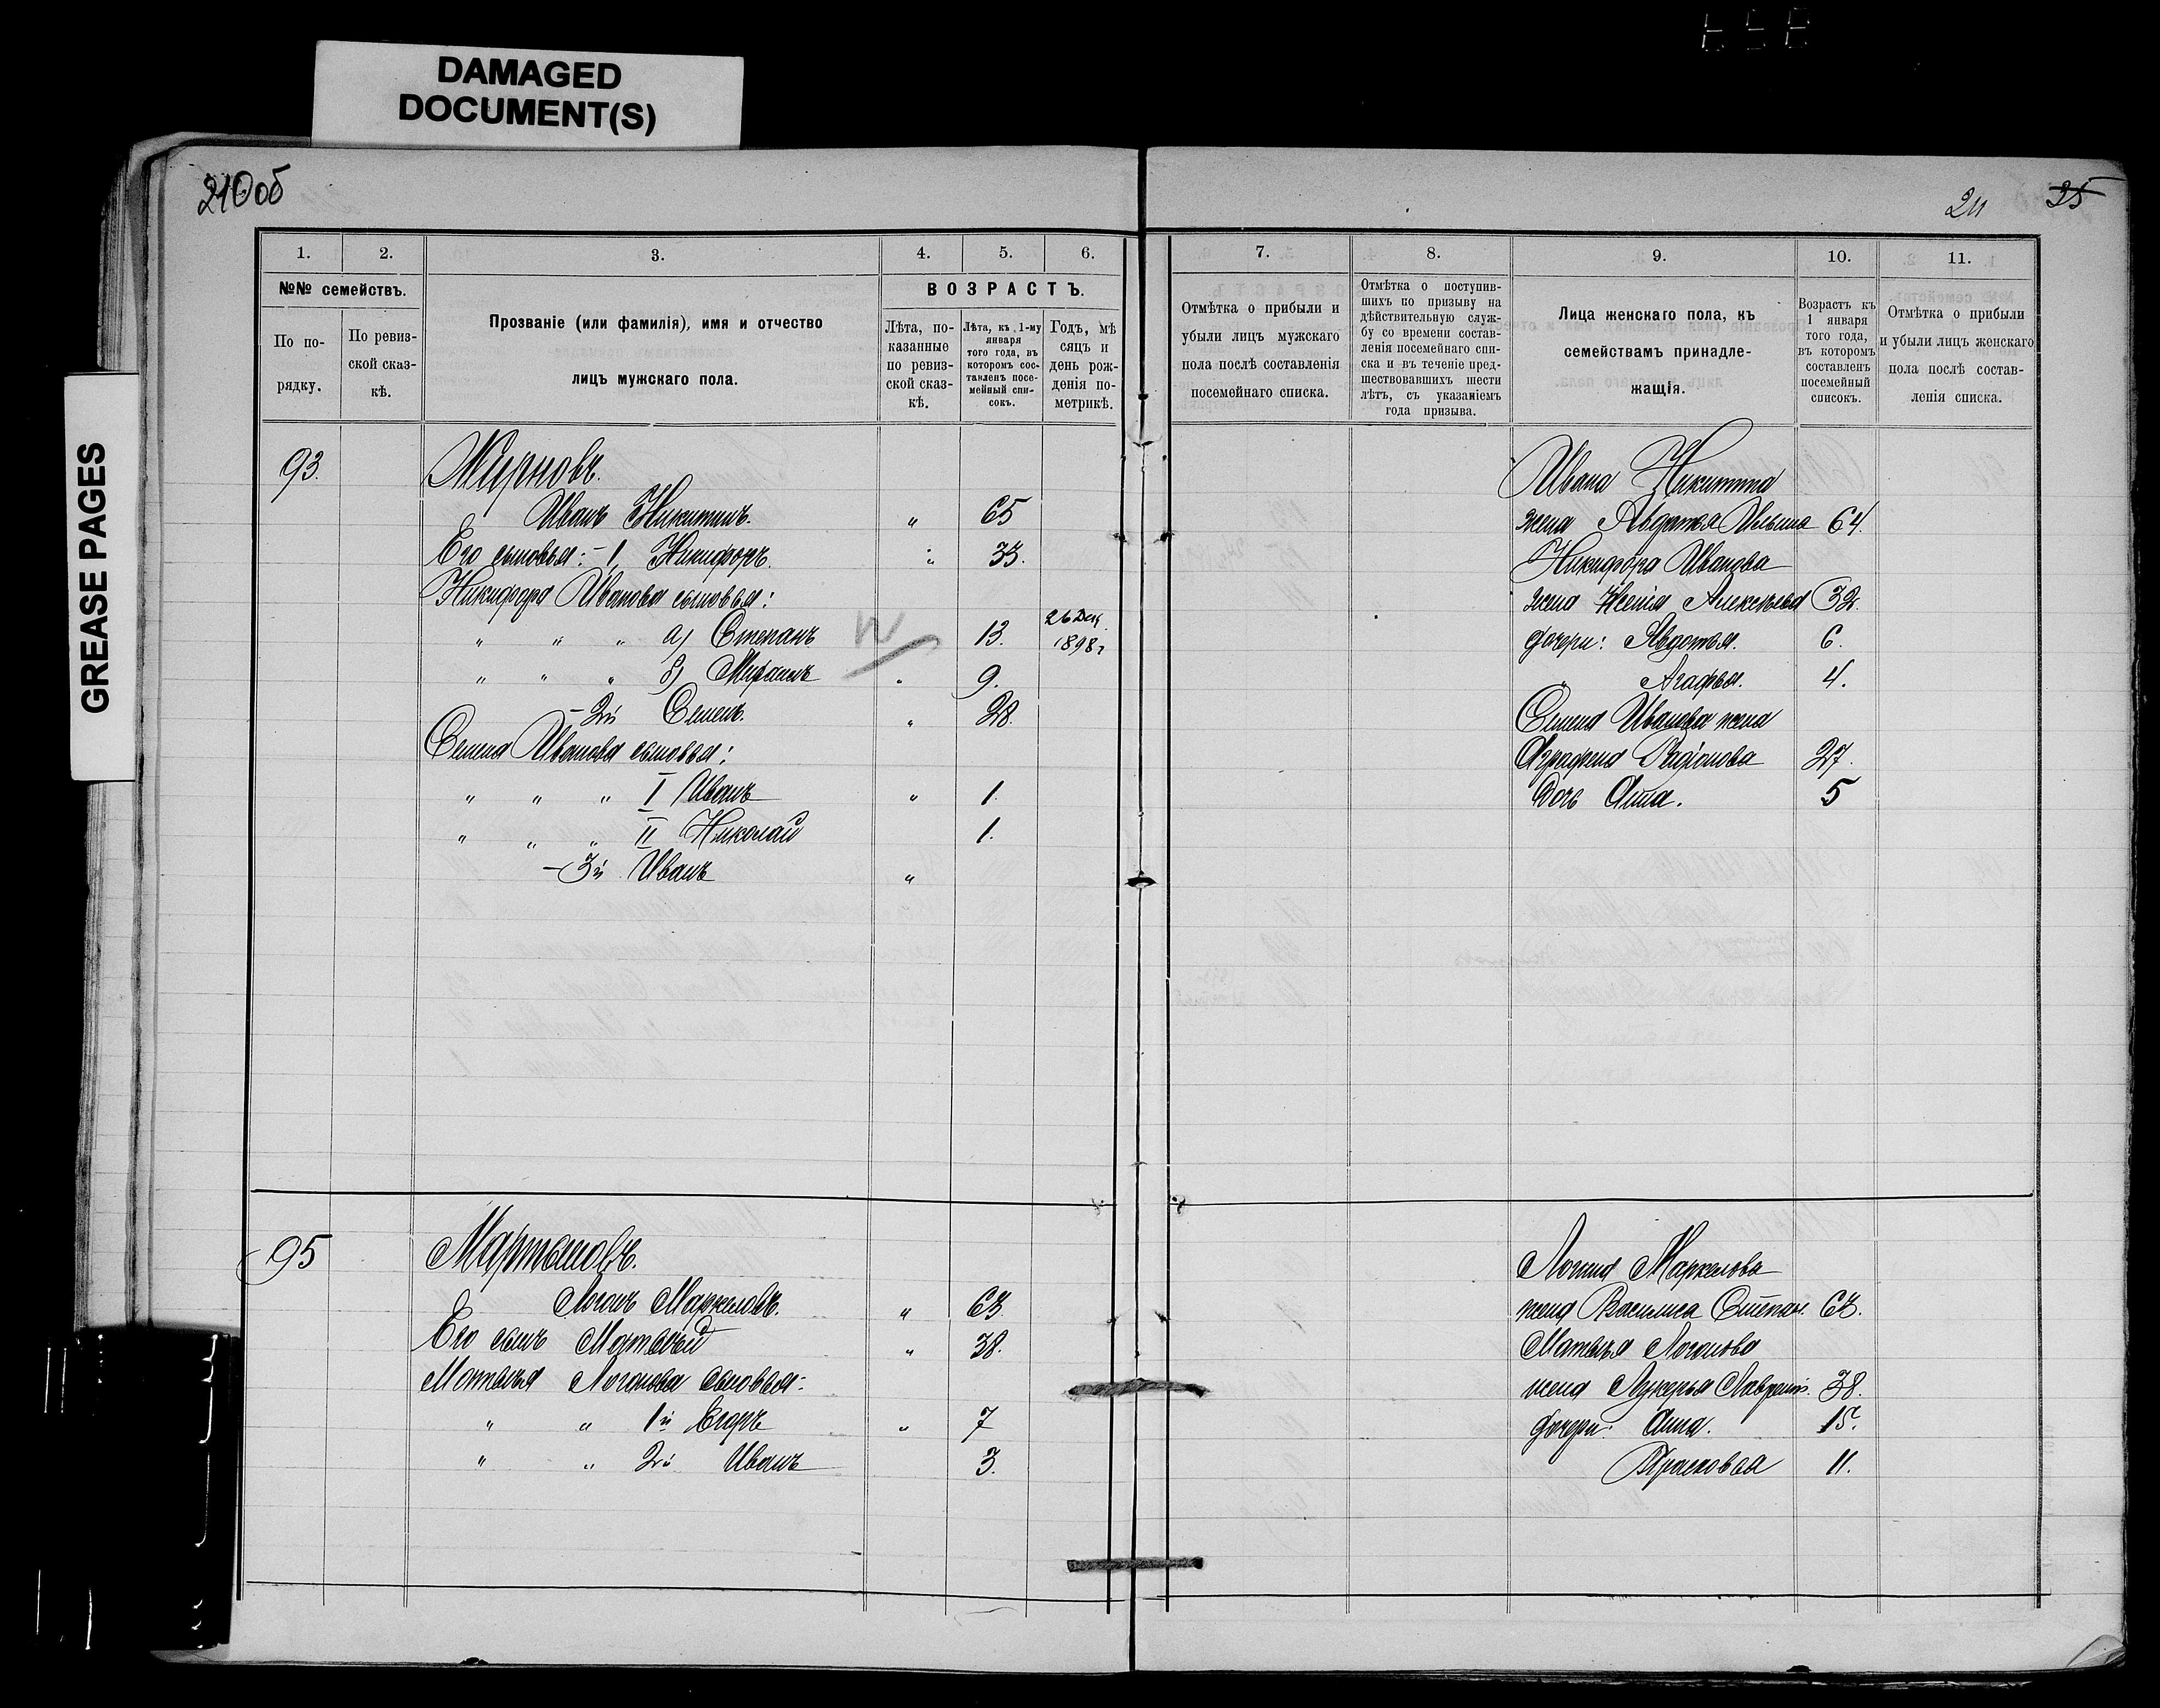 DAMAGED
DOCUMENT(S)
GREASE PAGES
210об
211 35
1. 2. 3. 4. 5. 6.
№№ семействъ.
По по-
рядку.
По ревиз-
ской сказ-
кѣ.
Прозваніе (или фамилія), имя и отчество
лицъ мужскаго пола.
ВОЗРАСТЪ.
Лѣта, по-
казанные
по ревиз-
ской сказ-
кѣ.
Лѣта, къ 1-му
января
того года, въ
которомъ сос-
тавленъ посе-
мейный спи-
сокъ.
Годъ, мѣ
сяцъ и
день рож-
денія по-
метрикѣ.
93. Жирновъ.
Иванъ Никитинъ. " 65
Его сыновья: - 1, Никифоръ. " 33.
Никифора Иванова сыновья:
" " " а) Степанъ 13. 26 Дек.
1898 г
" " " б) " 9.
- 2й Семенъ. " 28.
Семена Иванова сыновья:
" " " I Иванъ " 1.
" " " II Николай 1.
- 3й Иванъ "
95 Мартыновъ.
Логинъ Маркеловъ. " 63
Его сынъ Матвѣй " 38.
Матвѣя Логинова сыновья:
" " 1й Егоръ " 7
" " 2й Иванъ 3.
7. 8. 9. 10. 11.
Отмѣтка о прибыли и
убыли лицъ мужскаго
пола послѣ составленія
посемейнаго списка.
Отмѣтка о поступив-
шихъ по призыву на
дѣйствительную служ-
бу со времени состав-
ленія посемейнаго спи-
ска и въ теченіе пред-
шествовавшихъ шести
лѣтъ, съ указаніемъ
года призыва.
Лица женскаго пола, къ
семействамъ принадле-
жащія.
Возрастъ къ
1 января
того года,
въ которомъ
составленъ
посемейный
списокъ.
Отмѣтка о прибыли
и убыли лицъ женскаго
пола послѣ состав-
ленія списка.
Ивана Никитина
жена Авдотья Ильина 64.
Никифора Иванова
жена Ксенія Алексѣева 32.
дочери: Авдотья. 6.
" Агафья. 4.
Семена Иванова жена
Аграфена Радіонова 27.
Дочь Анна. 5
Логина Маркелова
жена Василиса Степан. 63.
Матвѣя Логинова
жена Лукерья Лаврент. 38.
дочери: Анна. 15.
Прасковья 11.